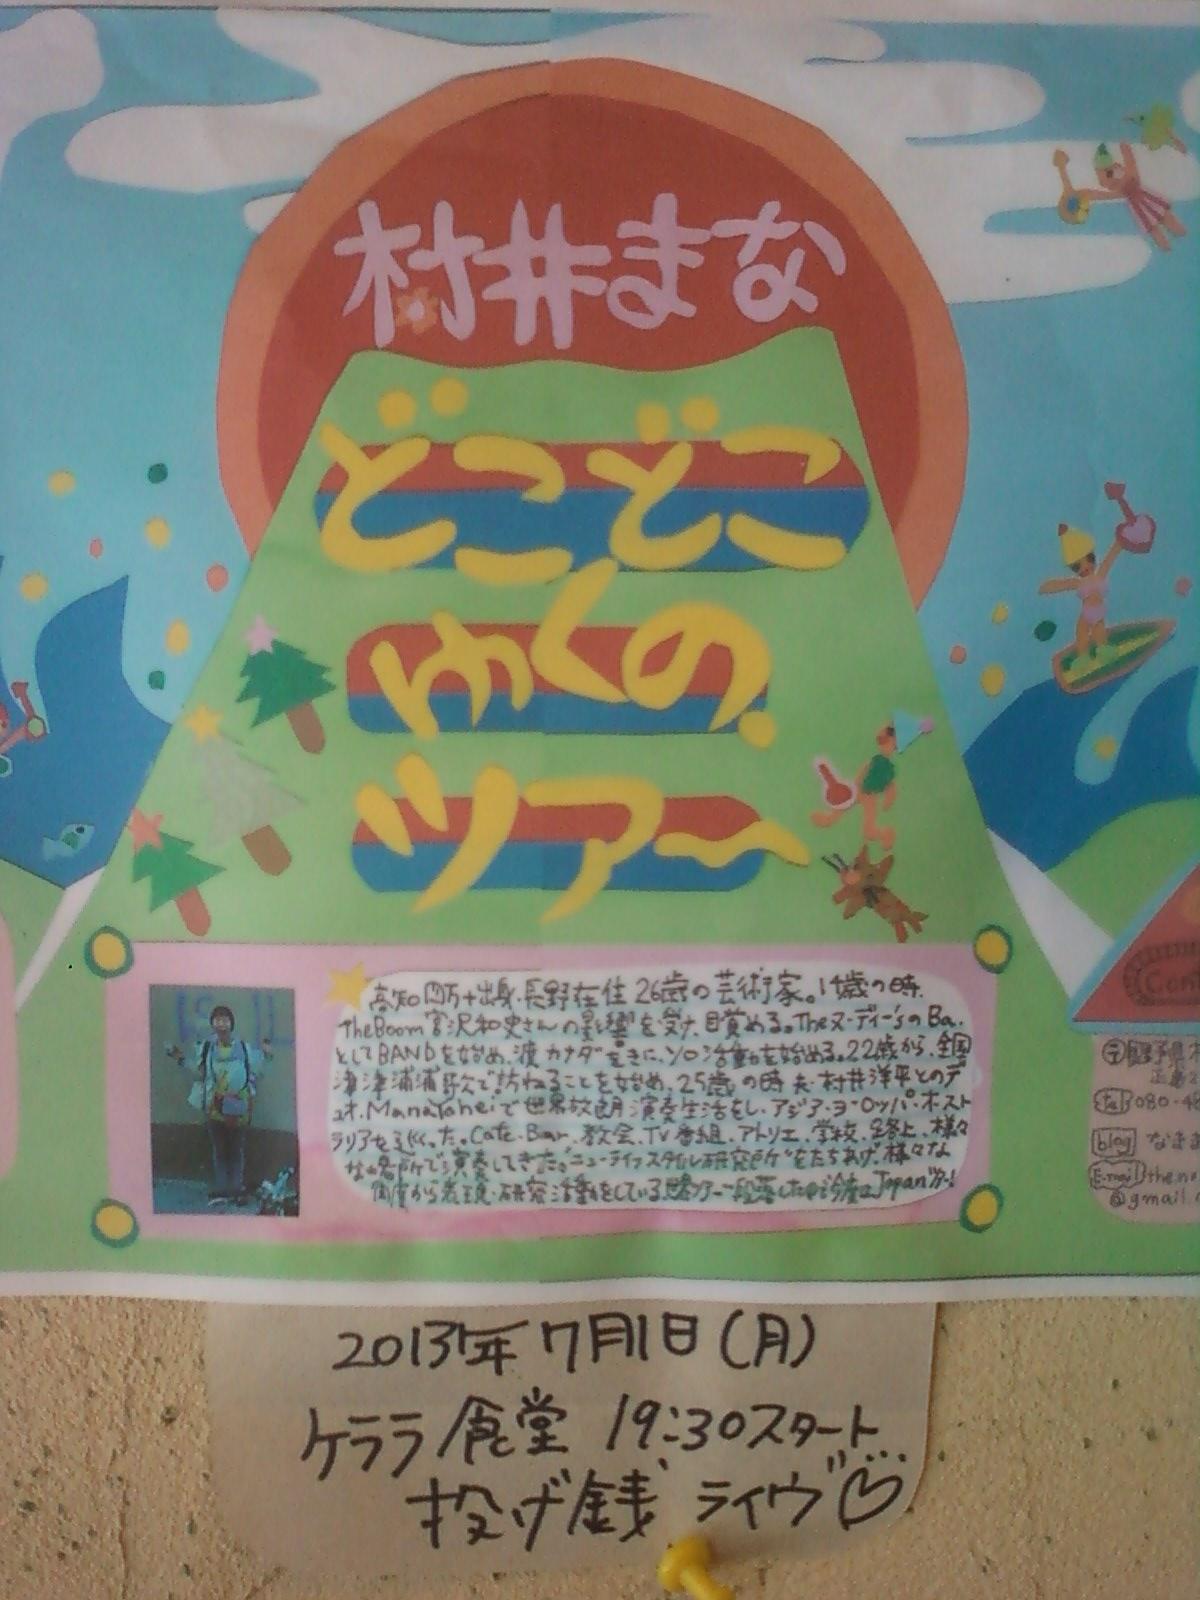 村井まな
どこどこ
ゆくの
ツアー
高知四万十出身・長野在住26歳の芸術家。14歳の時、
TheBoom宮沢和史さんの影響を受け、目覚める。Theヌーディー'sのBa.
としてBANDを始め、渡カナダを きに、ソロ活動を始める。22歳から、全国
津津浦浦歌で訪ねることを始め、25歳の時夫・村井洋平とのデ
ュオ.ManaYoheiで世界放朗演奏生活をし、アジア・ヨーロッパ・オースト
ラリアを巡った。Cafe.Bar.教会.TV番組.アトリエ.学校.路上.様々
な場所で演奏してきた。"ニューライフスタイル研究所"をたちあげ、様々な
角度から表現・研究活動をしている。 ツアー一段落した Japanツアー!
Com
080-48
blog なまま
E-mail the.no
@gmail.
2013年7月1日(月)
ケララ食堂 19:30スタート
投げ銭 ライヴ♡